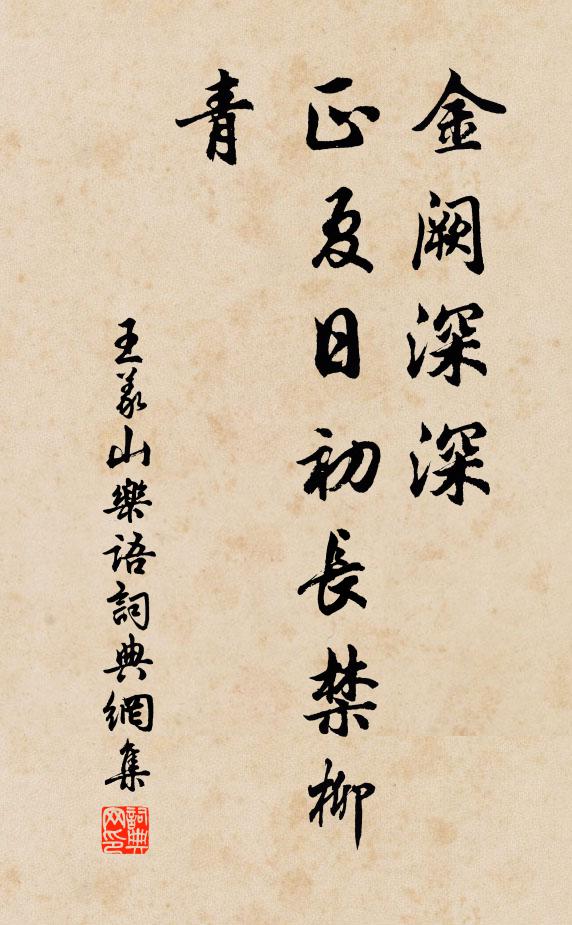 金闕深深
正夏日初長禁柳
青
王義山樂語詞典網集
詞典
网印